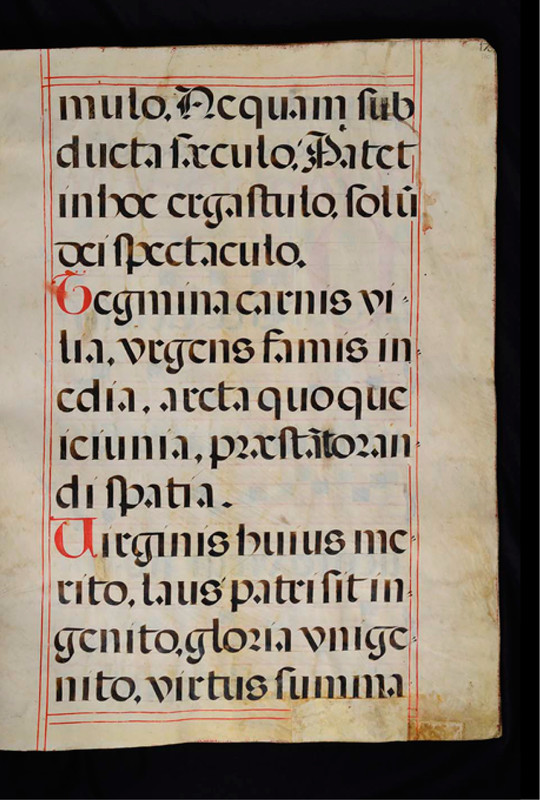 mulo. Nequam sub
ducta sæculo, Patet
in hoc ergastulo, solũ
dei spectaculo.
Tegmina carnis vi
lia, vrgens famis in
edia, arcta quoque
ieiunia, præstãt oran
di spatia.
Uirginis huius me
rito, laus patri sit in
genito, gloria vnige
nito, virtus summa